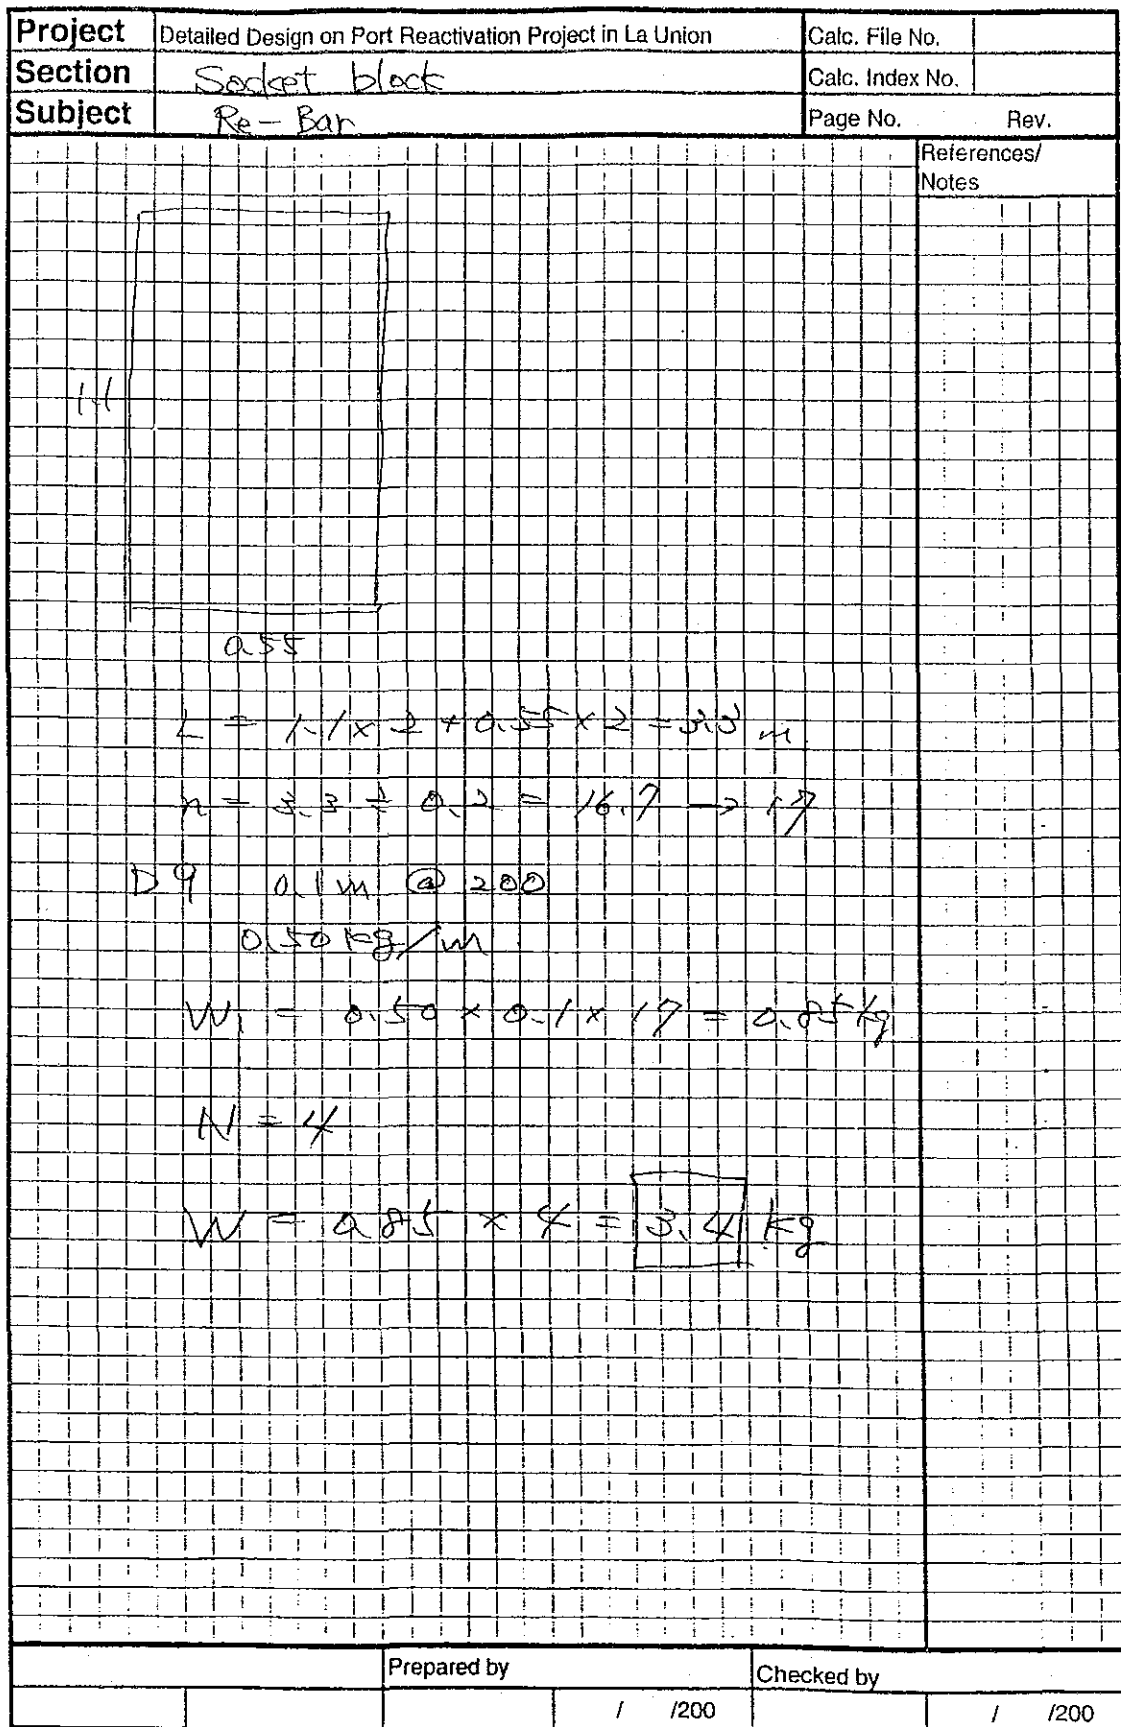 Project Detailed Design on Port Reactivation Project in La Union Calc. File No.
Section Socket block Calc. Index No.
Subject Re-Bar Page No. Rev.
References/
Notes
1.1
0.55
L = 1.1 x 2 + 0.55 x 2 = 3.3 m
n = 3.3 ÷ 0.2 = 16.7 → 17
D9 0.1m @ 200
0.50 kg/m
W1 = 0.50 x 0.1 x 17 = 0.85 kg
N = 4
W = 0.85 x 4 = 3.4 kg
Prepared by Checked by
/ /200 / /200